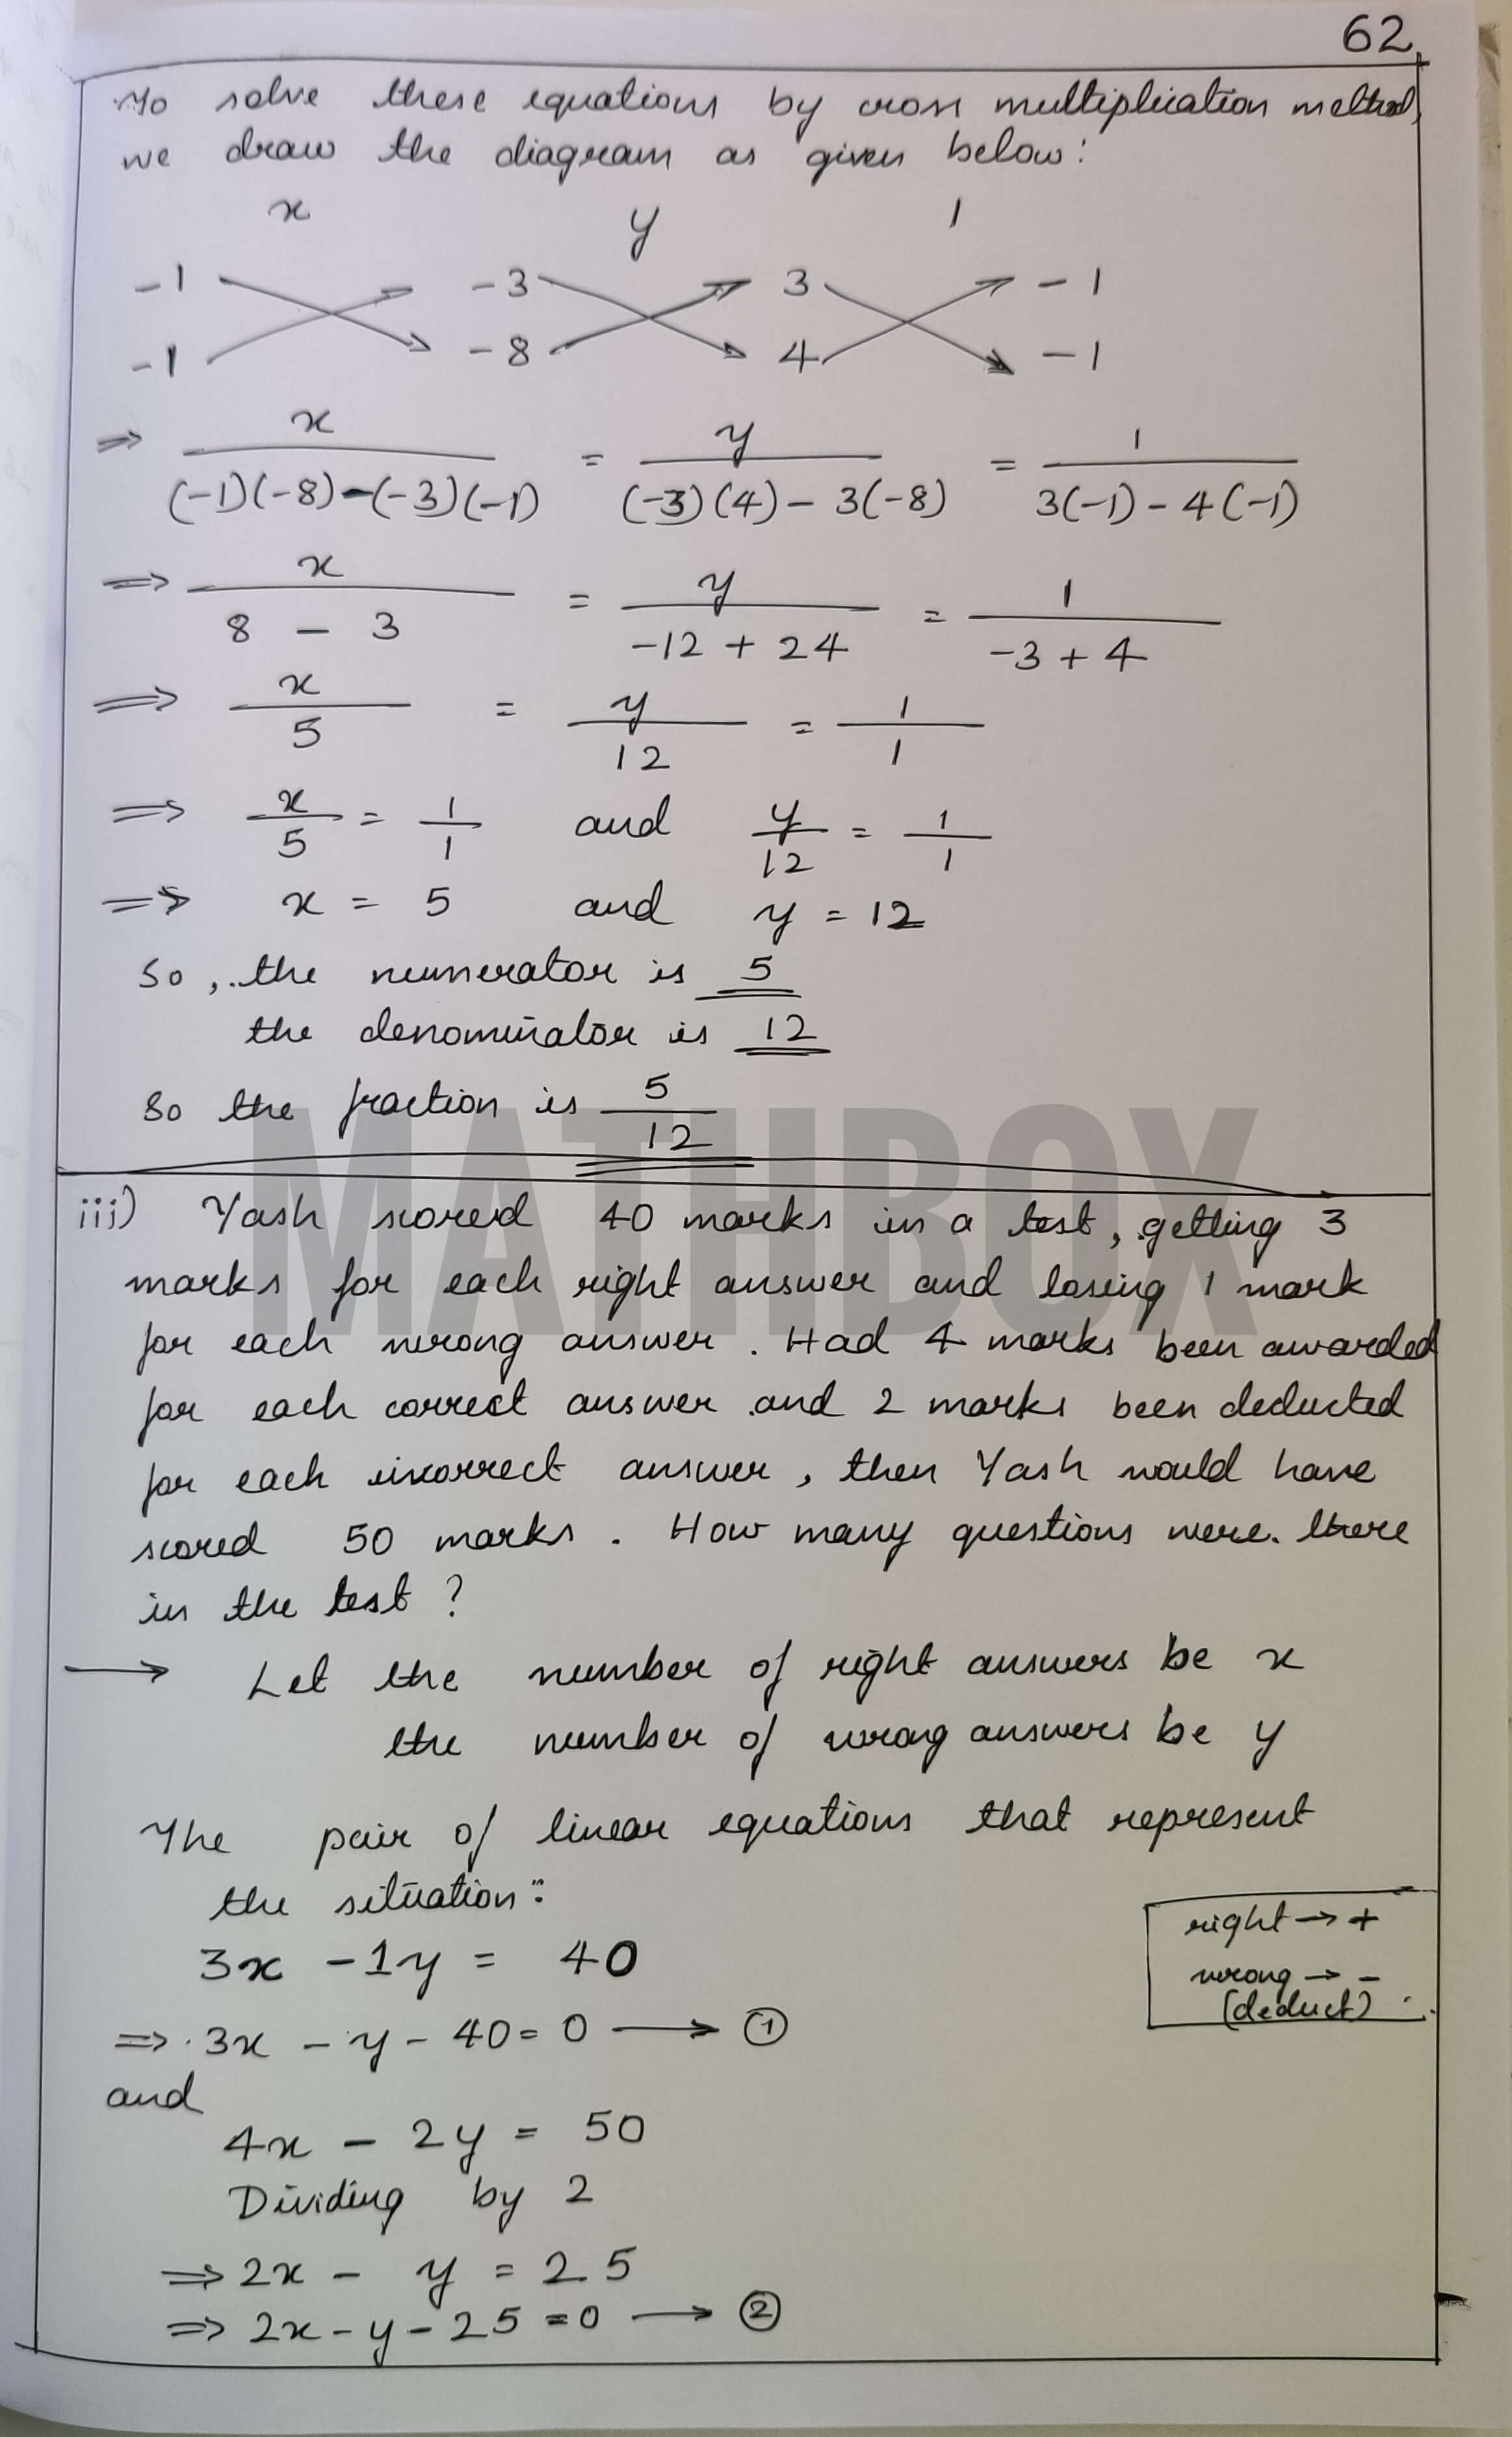 62
To solve these equations by cross multiplication method,
we draw the diagram as given below:
x y 1
-1 -3 3 -1
-1 -8 4 -1
⇒ x/((-1)(-8)-(-3)(-1)) = y/((-3)(4) - 3(-8)) = 1/(3(-1) - 4(-1))
⇒ x/(8 - 3) = y/(-12 + 24) = 1/(-3 + 4)
⇒ x/5 = y/12 = 1/1
⇒ x/5 = 1/1 and y/12 = 1/1
⇒ x = 5 and y = 12
So, the numerator is 5
the denominator is 12
So the fraction is 5/12
MATHBOX
iii) Yash scored 40 marks in a test, getting 3
marks for each right answer and losing 1 mark
for each wrong answer. Had 4 marks been awarded
for each correct answer and 2 marks been deducted
for each incorrect answer, then Yash would have
scored 50 marks. How many questions were there
in the test?
→ Let the number of right answers be x
the number of wrong answers be y
The pair of linear equations that represent
the situation:
3x - 1y = 40
⇒ 3x - y - 40 = 0 → ①
and
4x - 2y = 50
Dividing by 2
⇒ 2x - y = 25
⇒ 2x - y - 25 = 0 → ②
right → +
wrong → -
(deduct)